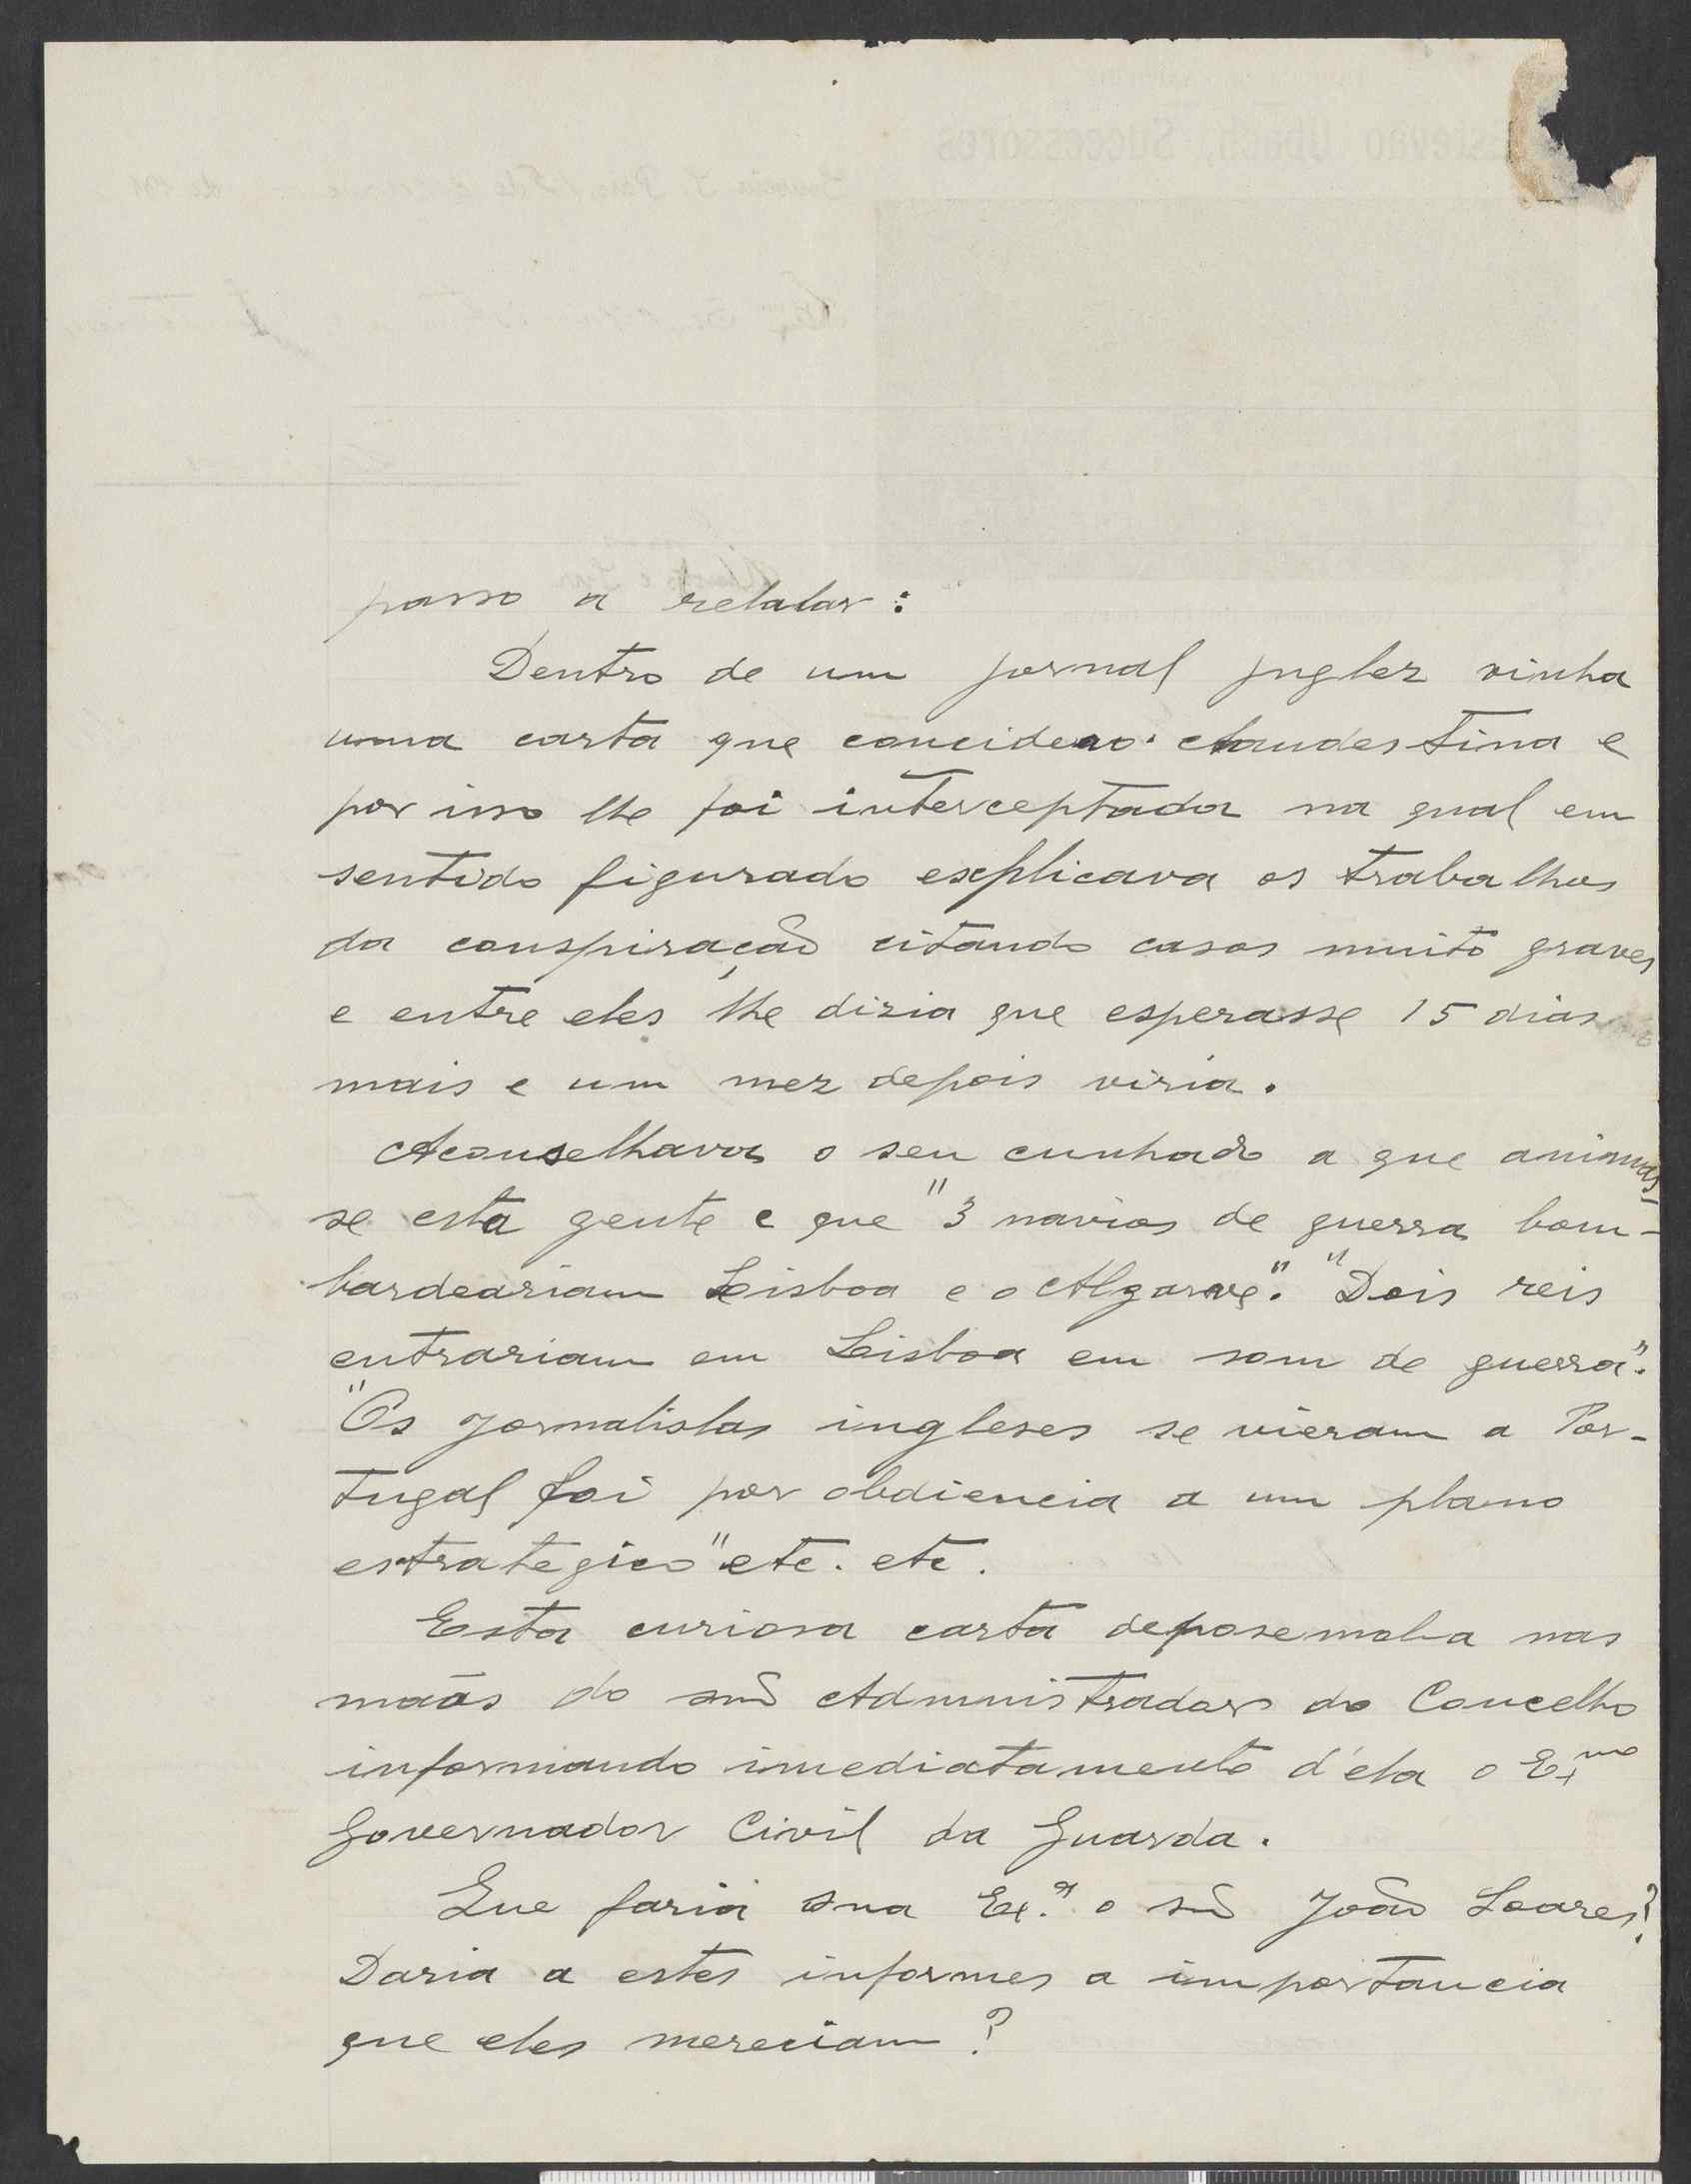 passo a relatar:
Dentro de um jornal inglez vinha
uma carta que concidero clandestina e
por isso lhe foi interceptada na qual em
sentido figurado explicava os trabalhos
da conspiração citando casos muito graves
e entre eles lhe dizia que esperasse 15 dias
mais e um mez depois viria.
Aconselhava o seu cunhado a que animas-
se esta gente e que "3 navios de guerra bom-
bardeariam Lisboa e o Algarve". "Dois reis
entrariam em Lisboa em som de guerra".
"Os jornalistas ingleses se vieram a Por-
tugal foi por obdiencia a um plano
estrategico" etc. etc.
Esta curiosa carta nas
mãos do snr Administrador do Concelho
informando imediatamente d'ela o Exmo
Governador Civil da Guarda.
Que faria sua Ex.ª o snr João Soares?
Daria a estes informes a importancia
que eles mereciam?
Estevão Ubach, Successores